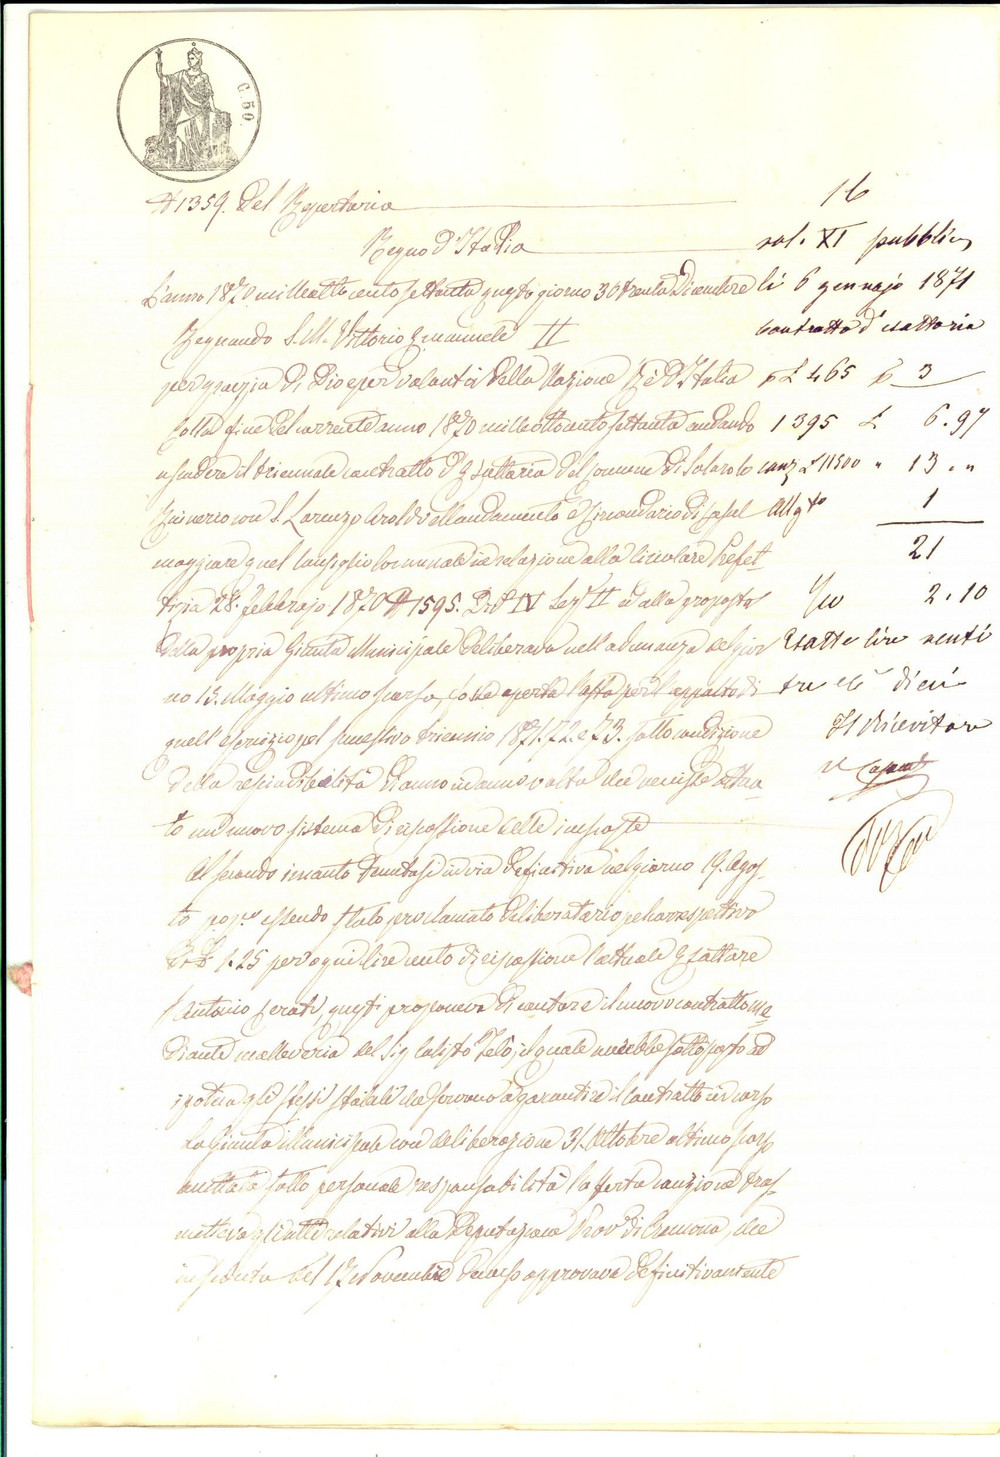 C. 50.
N 1359. Del Repertorio
Regno d'Italia
L'anno 1870 milleottocentosettanta questo giorno 30 trenta Dicembre
Regnando S. M. Vittorio Emanuele II
per grazia di Dio e per volontà della Nazione Rè d'Italia
Colla fine del corrente anno 1870 milleottocentosettanta andando
a scadere il triennale contratto d'Esattoria del Comune di Solarolo
Rainerio con S. Lorenzo Aroldo ed andamento e Circondario di Casal
maggiore quel Consiglio Comunale in relazione alla Circolare Prefet
tizia 28. Febbrajo 1870 N 1595. Div. IV Sez. II e alla proposta
della propria Giunta Municipale deliberava nell'adunanza del gior
no 13. Maggio ultimo scorso, aperta l'asta per l'appalto di
quell'esercizio pel successivo triennio 1871. 72. e 73. sotto condizione
della rescindibilità d'anno in anno volta che venisse attua
to un nuovo sistema di riscossione delle imposte
Al secondo incanto tenutosi in via definitiva nel giorno 19. Agos
to p.p. essendo stato proclamato deliberatario pel corrispettivo
di £ 1.25 per ogni lire cento di riscossione l'attuale Esattore
Antonio Cerati, questi proponeva di cautare il nuovo contratto me
diante malleveria del Sig. Calisto Talò, il quale avrebbe sottoposto ad
ipoteca gli stessi stabili che servono a garantire il contratto in corso
La Giunta Municipale con deliberazione 31. Ottobre ultimo scorso
accettata sotto personale responsabilità la offerta cauzione tras
metteva gli atti relativi alla Deputazione Prov. di Cremona, che
in seduta del 17 Novembre decorso approvava definitivamente
16
vol. XI pubblici
li 6 gennajo 1871
Contratto d'esattoria
p £ 465 p 3
1395 £ 6.97
cauz. £ 11500 " 13. "
Alleg.to 1
21
2.10
Esatte lire venti
tre e C. dieci
Il Ricevitore